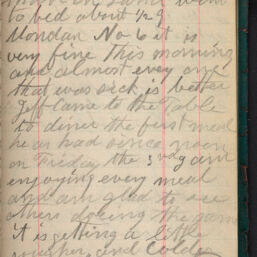 to bed about 1/2 9
Monday No 6 it is
very fine this morning
and almost every one
that was sick is better
Jeff came to the Table
to diner the first meal
he as had since noon
on Friday the 3rd I am
enjoying every meal
and am glad to see
others doeing the same
it is getting a little
and Colder